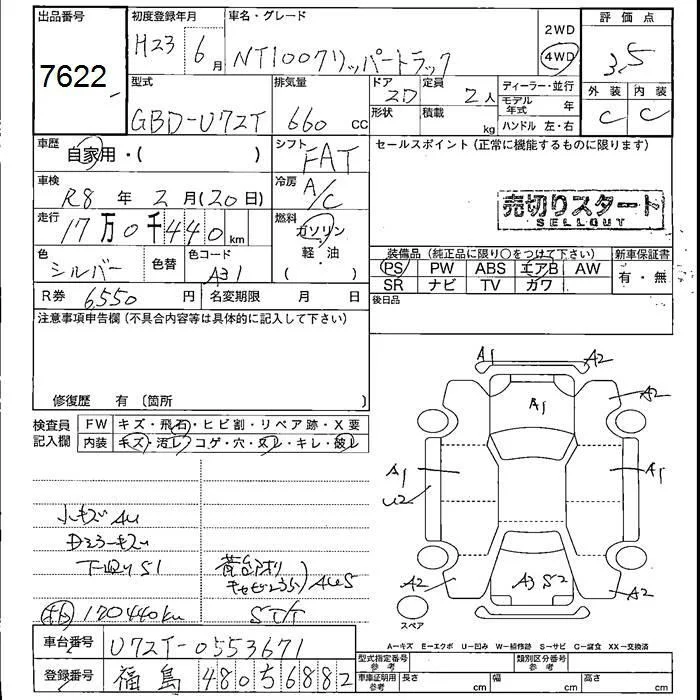 出品番号
7622
初度登録年月
H23 6月
車名・グレード
NT100クリッパートラック
2WD
4WD
評価点
3.5
外装 内装
C C
型式
GBD-U72T
排気量
660 cc
ドア 2D
形状
定員 2人
積載 kg
ディーラー・並行
モデル年式 年
ハンドル 左・右
車歴
自家用・( )
シフト
FAT
セールスポイント(正常に機能するものに限ります)
売切りスタート
SELLOUT
車検
R8年 2月(20日)
冷房
A/C
走行
17万0千440km
燃料
ガソリン・軽油
( )
色
シルバー
色替
色コード
装備品(純正品に限り○をつけて下さい)
新車保証書
PS PW ABS エアB AW
SR ナビ TV カワ
有・無
後日品
R券 6550円
名変期限 月 日
注意事項申告欄(不具合内容等は具体的に記入して下さい)
修復歴 有(箇所 )
検査員記入欄
FW キズ・飛石・ヒビ割・リペア跡・X要
内装 キズ・汚レ・コゲ・穴・ヌレ・キレ・破レ
小キズAU
下廻りS1
170440km
A1
A2
A2
A1
A1
U2
A1
A2
A3 S2
A2
スペア
A-キズ E-エクボ U-凹み W-補修跡 S-サビ C-腐食 XX-交換済
車台番号
U72T-0553671
登録番号
福島 480 5 6882
型式指定番号 参考
類別区分番号 参考
車庫証明用 参考
長さ cm
幅 cm
高さ cm